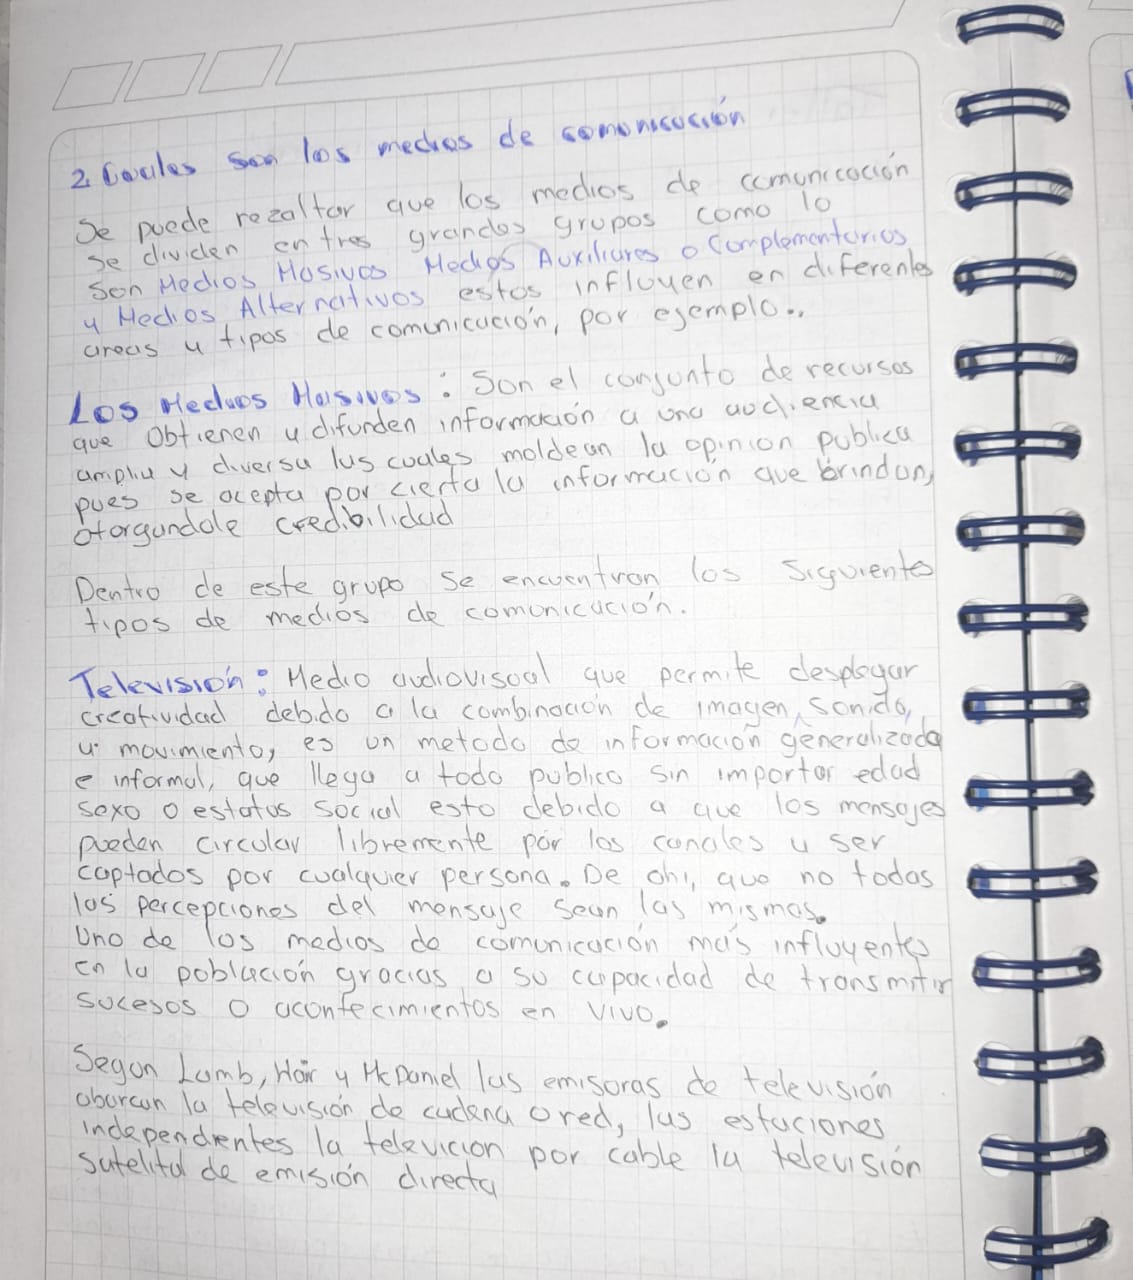 2. Cuales son los medios de comonicación
Se puede rezaltar que los medios de comunicación
se dividen en tres grandes grupos como lo
son Medios Masivos Medios Auxiliares o Complementarios
y Medios Alternativos estos influyen en diferentes
areas y tipos de comunicación, por ejemplo..
Los Medios Masivos: Son el conjunto de recursos
que Obtienen y difunden información a una audiencia
amplia y diversa las cuales moldean la opinion publica
pues se acepta por cierta la información que brindan,
otorgandole credibilidad
Dentro de este grupo se encuentran los siguientes
tipos de medios de comonicación.
Televisión: Medio audiovisual que permite desplegar
creatividad debido a la combinación de imagen, sonido,
y movimiento, es un metodo de información generalizada
e informal, que llega a todo publico sin importar edad
sexo o estatus social esto debido a que los mensajes
pueden circular libremente por los canales y ser
captados por cualquier persona. De ohi, que no todas
las percepciones del mensaje sean las mismas.
Uno de los medios de comonicación más influyentes
en la población gracias a su capacidad de transmitir
sucesos o acontecimientos en vivo.
Segun Lamb, Hair y McDaniel las emisoras de televisión
abarcan la televisión de cadena o red, las estaciones
independientes la televicion por cable la televisión
satelital de emisión directa